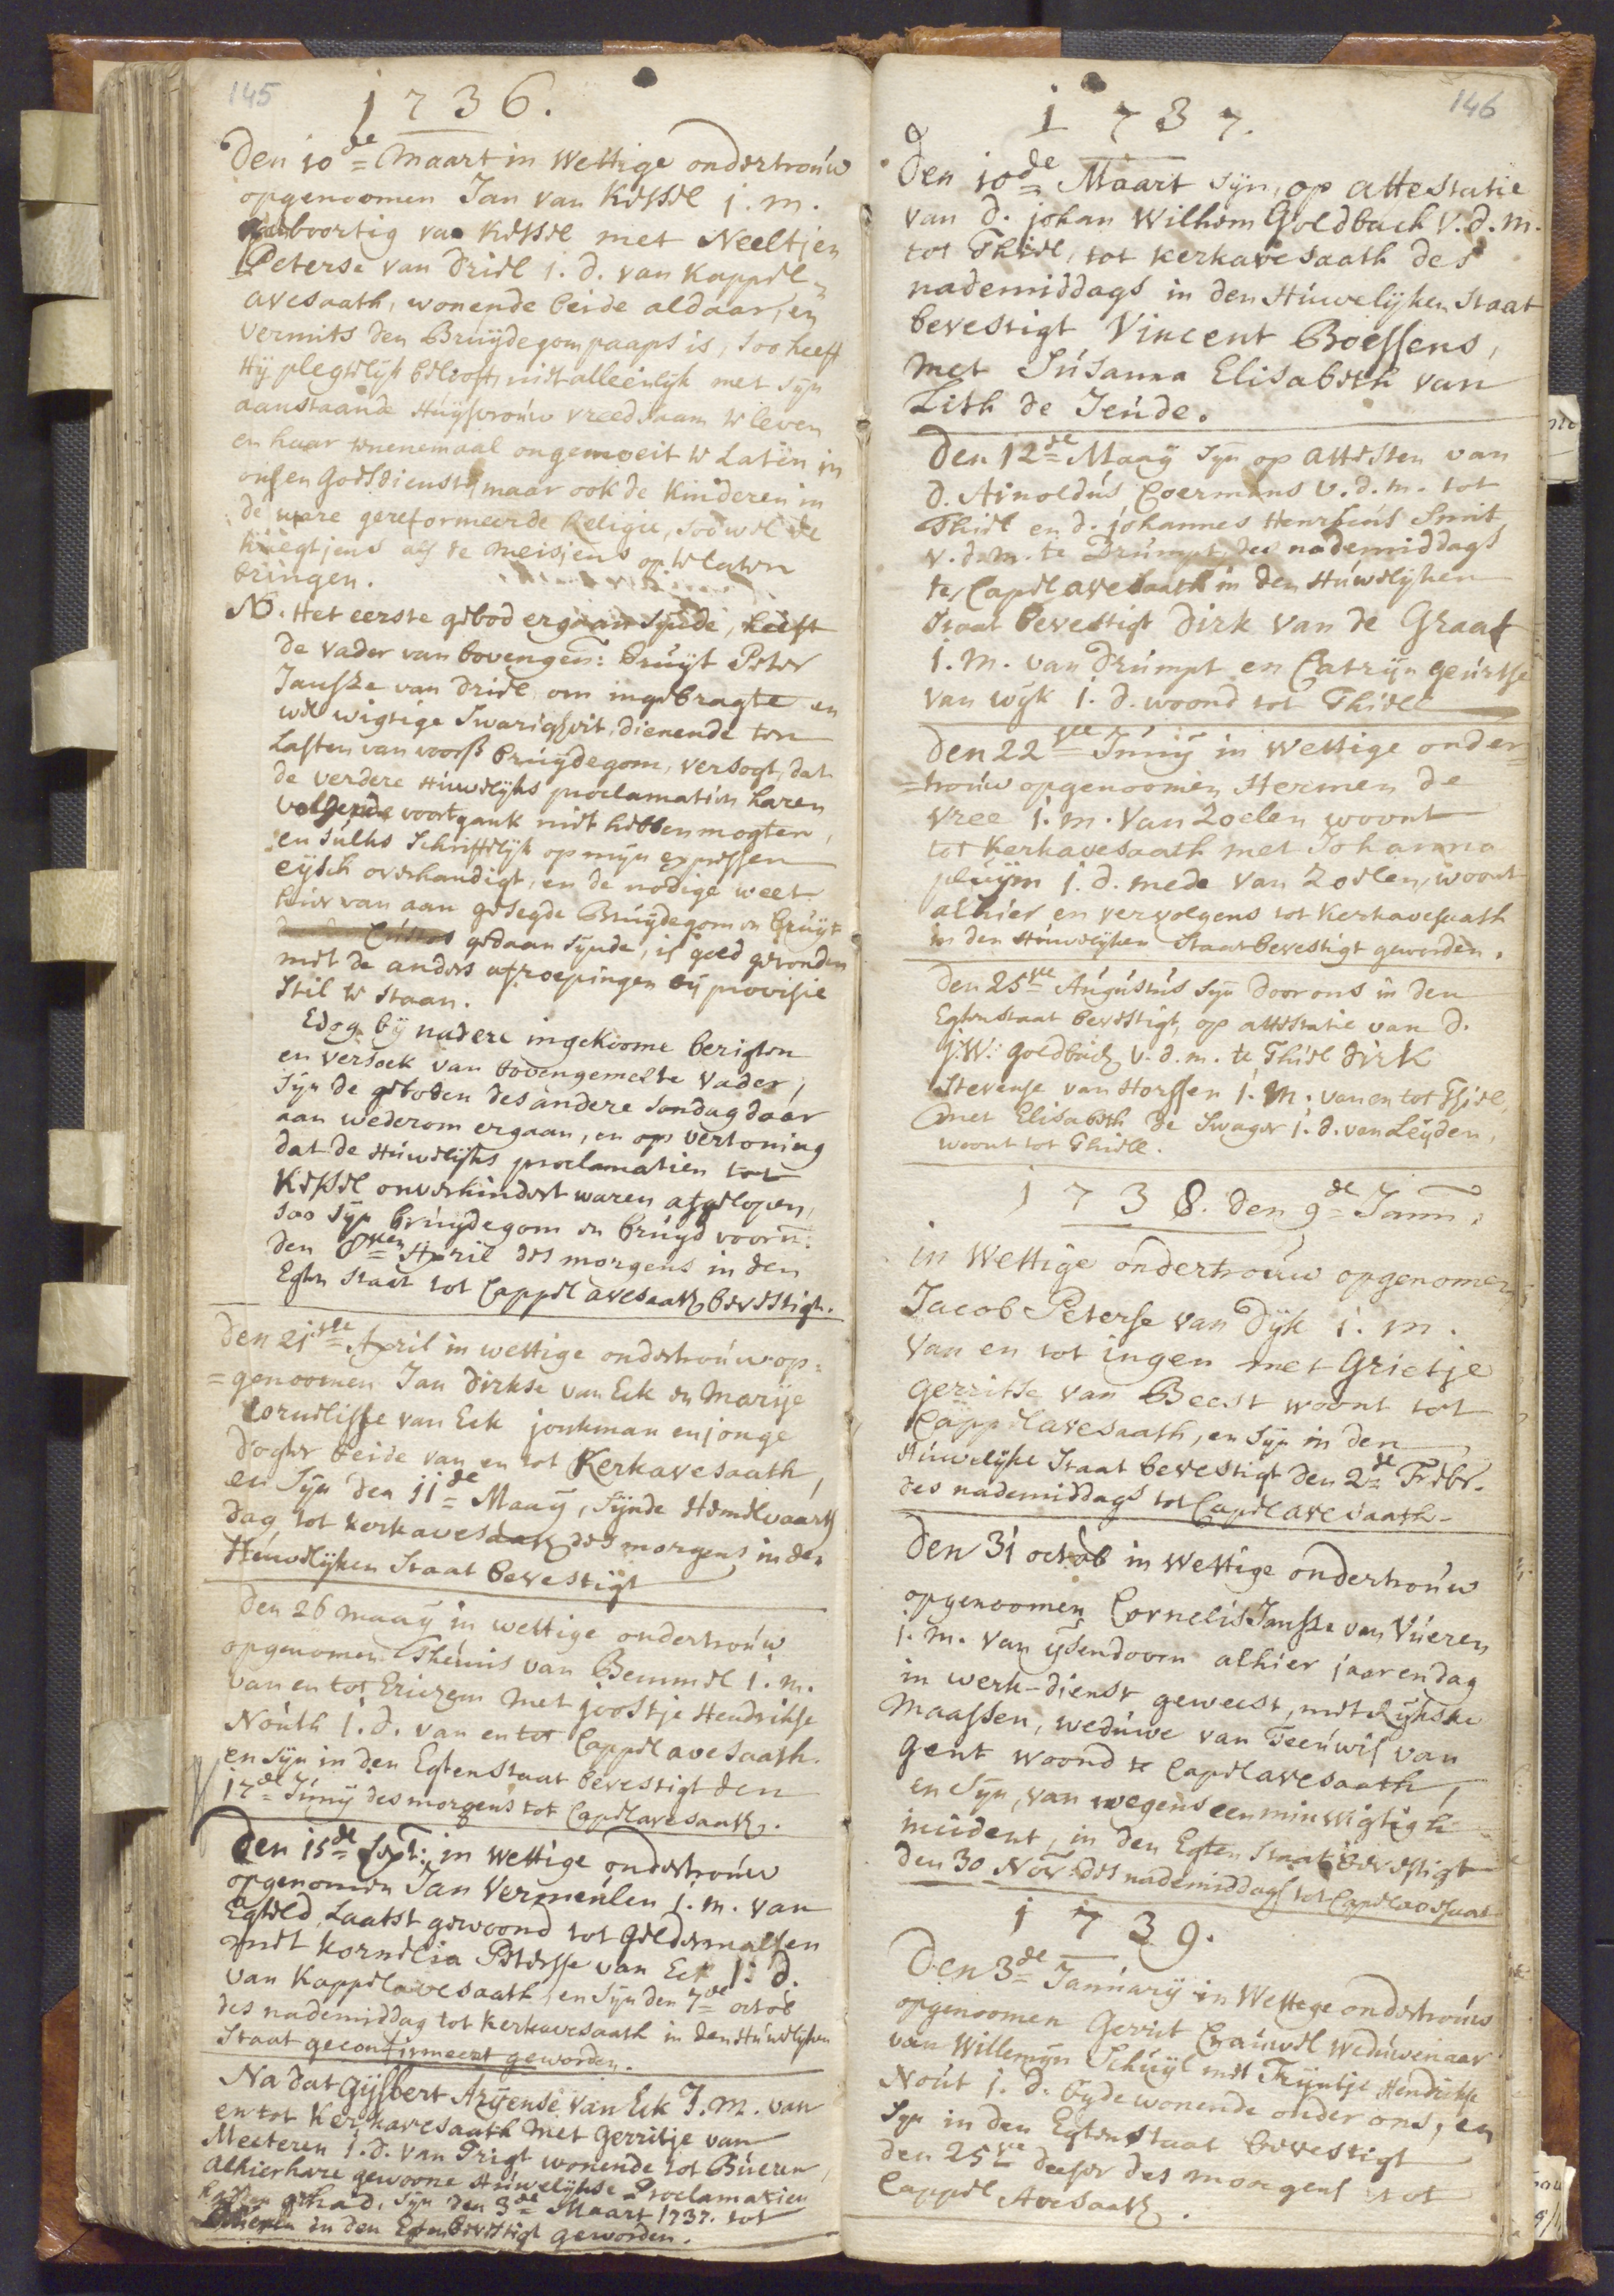 145
1736.
Den 10de= Maart in Wettige ondertrouw
opgenoomen Jan van Kessel j. m.
geboortig van Kessel met Neeltjen
Peterse van Driel j. d. van Kappel=
avesaath, wonende beide aldaar, en
vermits den Bruijdegom paaps is, soo heeft
Hij plegtelijk belooft, niet alleenlijk met sijn
aanstaande Huijsvrouw vreedsaam te leven
en haar tenenemaal ongemoeit te Laten in
onsen Godsdienst, maar ook de Kinderen in
de ware gereformeerde Religie, soo wel de
knegtjens als de meisjens op te laten
bringen.
NB. Het eerste gebod ergaan sijnde, heeft
de vader van bovengen: bruijt Peter
Jansze van Driel om ingebragte en
wel wigtige Swarigheit, dienende ten
Lasten van voors bruijdegom, versogt, dat
de verdere Huwelijks proclamatien haren
volgende voortgank niet hebben mogten,
en sulks Schriftelijk op mijn expressen
eijsch overhandigt, en de nodige weet
hier van aan gesegde Bruijdegom en bruijt
Custos gedaan sijnde, is goed gevonden
met de anders afroepingen bij provisie
stil te staan.
Edog bij nadere ingekoome berigten
en versoek van bovengemelte vader,
sijn de geboden des andere sondag daar
aan wederom ergaan, en op vertoning
dat de Huwelijks proclamatien tot
Kessel onverhindert waren afgelopen,
soo sijn bruijdegom en bruijd voorn:
den 8sten April des morgens in den
Egten staat tot Cappel avesaath bevestigt.
Den 21ste= April in wettige ondertrouw op=
=genoomen Jan Dirkse van Eck en Marije
Cornelisse van Eck jonkman en jonge
dogter beide van en tot Kerkavesaath,
en sijn den 11de= Maaij, sijnde Hemelvaarts
dag tot kerkavesaath des morgens in den
Huwelijken Staat bevestigt
Den 26 maaij in wettige ondertrouw
opgenomen Theunis van Bemmel j. m.
van en tot Erichem met joostje Hendrikse
Nouth j. d. van en tot Cappel avesaath.
en sijn in den Egten staat bevestigt den
17de= Junij des morgens tot Capelavesaath.
Den 15de= Sept: in wettige ondertrouw
opgenomen Jan Vermeulen j. m. van
Egteld, Laatst gewoond tot Geldermalsen
met Kornelia Peterse van Eck j. d.
van Kappelavesaath, en sijn den 7de octob
des nademiddag tot kerkavesaath in den Huwelijken
Staat geconfirmeert geworden.
Na dat Gijsbert Arijense van Eck J. M. van
en tot Kerkavesaath met Gerritje van
Meeteren j. d. van Trigt wonende tot Bueren,
alhier hare gewoone Huwelijkse Proclamatien
hadden gehad, sijn den 3de Maart 1737. tot
in den Egten bevestigt geworden.
146
1737.
Den 10de= Maart sijn, op attestatie
van D. johan Wilhem Goldbach V. D. M.
tot Thiel, tot kerkavesaath des
nademiddags in den Huwelijken Staat
bevestigt Vincent Boessens,
met Susanna Elisabeth van
Lith de Jeude.
Den 12de= Maaij sijn op attesten van
D. Arnoldus Coermans V. d. m. tot
Thiel en d. johannes Henricus Smit
v. d. m. te Drumpt, des nademiddags
te Capel avesaath in den Huwelijken
Staat bevestigt Dirk van de Graaf
j. m. van Drumpt en Catrijn geurtse
van wijk j. d. woond tot Thiell
Den 22ste= Junij in wettige onder=
=trouw opgenoomen Hermen de
Vree j. m. van Zoelen woont
tot Kerkavesaath met Johanna
pluijm j. d. mede van Zoelen, woont
alhier en vervolgens tot Kerkavesaath
in den Huwelijken Staat bevestigt geworden.
Den 25ste= Augustus sijn door ons in den
Egten staat bevestigt, op attestatie van D.
J. W. Goldbach V. d. m. te Thiel Dirk
Stevense van Horssen j. m. van en tot Thiel,
met Elisabeth de Swager j. d. van Leijden,
woont tot Thiell.
1738. den 9de= Jann.
in Wettige ondertrouw opgenomen
Jacob Peterse van Dijk j. m.
van en tot ingen met Grietje
Gerritse van Beest woont tot
Cappelavesaath, en sijn in den
Huwelijke Staat bevestigt den 2de= Febr.
des nademiddags tot Capel avesaath.
Den 31 octob in Wettige ondertrouw
opgenoomen Cornelis Jansse van Vueren
j. m. van ysendoorn alhier jaar en dag
in werk-dienst geweest, met Rijkske
Maassen, weduwe van Teeuwis van
Gent woond te Capelavesaath,
en sijn, van wegens een min wigtigh
incident, in den Egten Staat bevestigt
den 30 Nov. des nademiddags tot Capelavesaat
1739.
Den 3de= Januarij in Wettege ondertrouw
opgenoomen Gerrit Crauwel weduwenaar
van Willemijn Schuijl met Trijntje Hendrikse
Nout j. d. beijde wonende onder ons, en
sijn in den Egten staat bevestigt
den 25ste deeser des morgens tot
Cappel Avesaath.